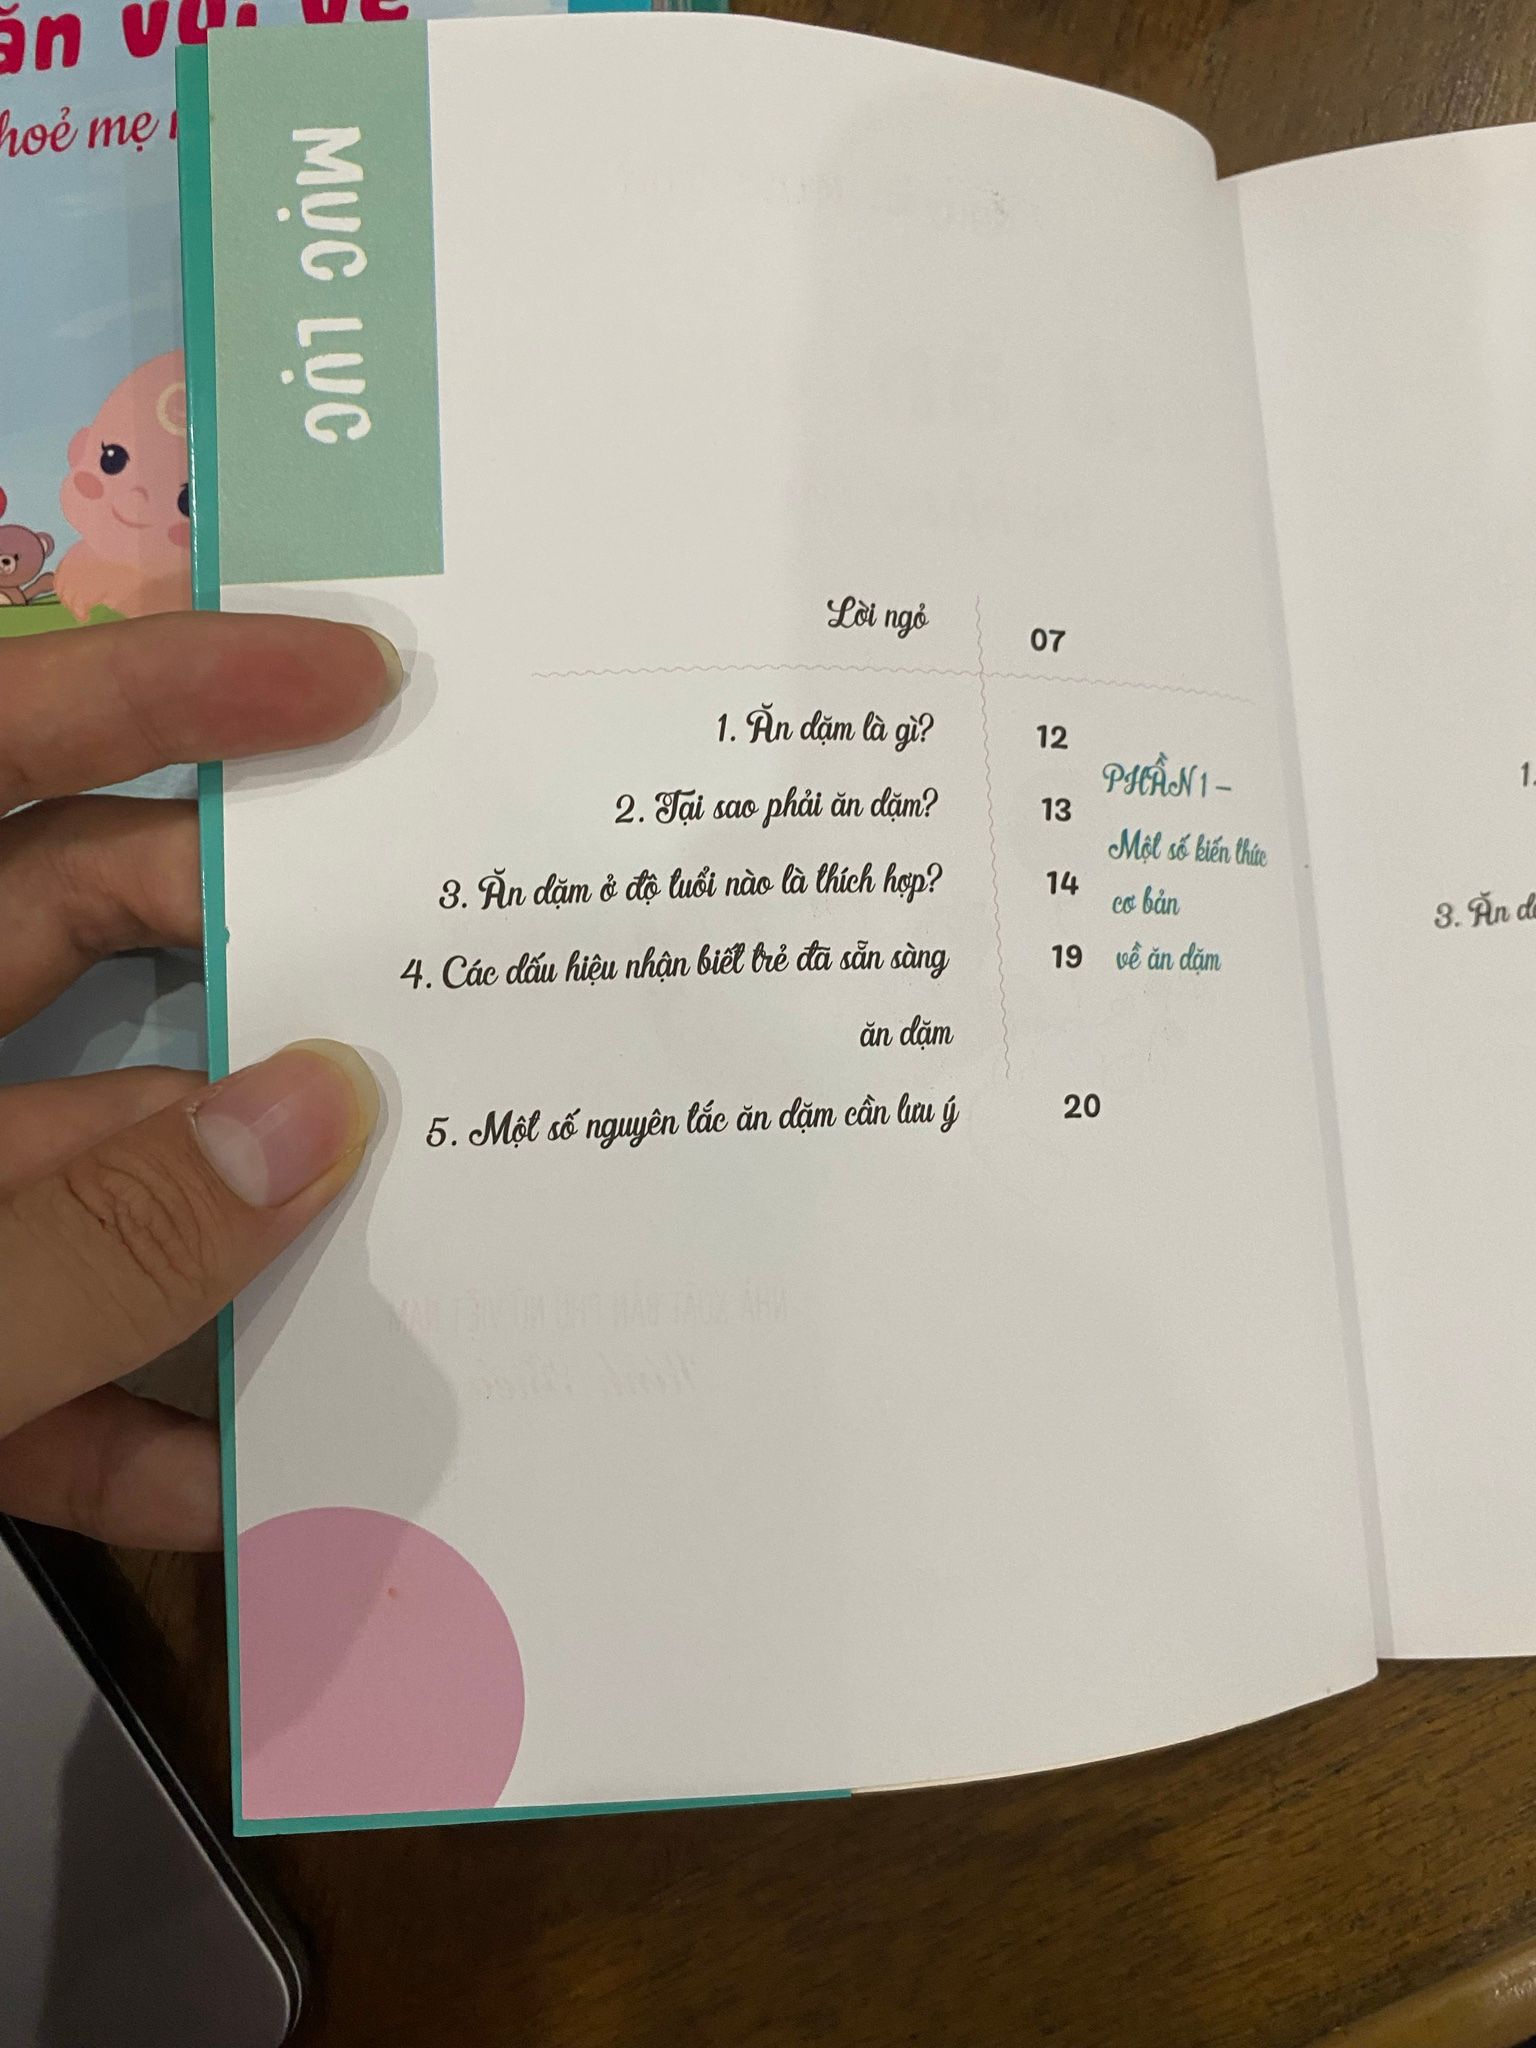 ăn vui vẻ
hoẻ mẹ
MỤC LỤC
Lời ngỏ 07
1. Ăn dặm là gì? 12
2. Tại sao phải ăn dặm? 13
3. Ăn dặm ở độ tuổi nào là thích hợp? 14
4. Các dấu hiệu nhận biết trẻ đã sẵn sàng 19
ăn dặm
5. Một số nguyên tắc ăn dặm cần lưu ý 20
PHẦN 1 –
Một số kiến thức
cơ bản
về ăn dặm
1.
3. Ăn